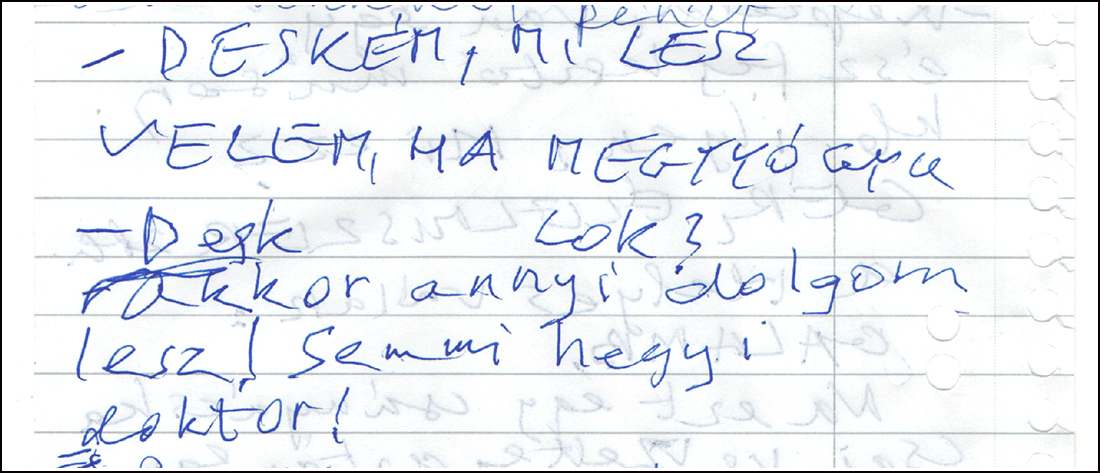 - DESKÉM, MI LESZ
VELEM, HA MEGGYÓGYU
LOK?
- Desk
akkor annyi dolgom
lesz! Semmi hegyi
doktor!